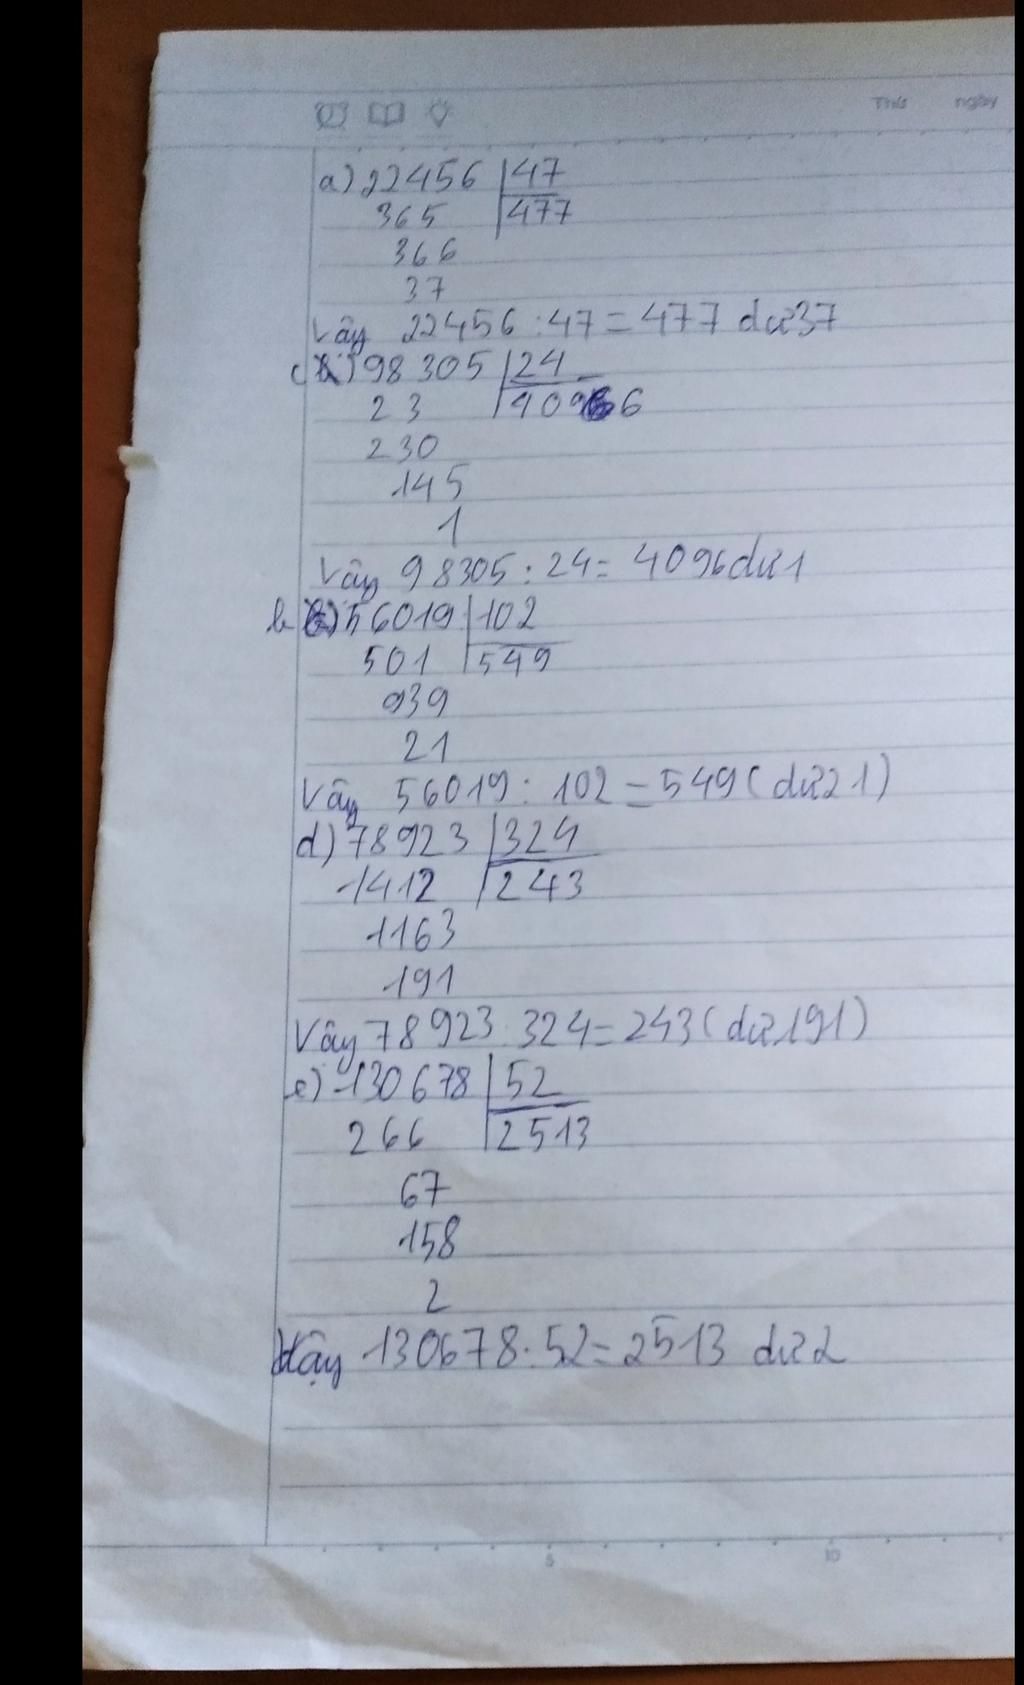 Thứ ngày
a) 22456 | 47
365 | 477
366
37
Vây 22456 : 47 = 477 dư 37
c) 98 305 | 24
23 | 409 6
230
145
1
Vây 98305 : 24 = 4096 dư 1
b) 56019 | 102
501 | 549
939
21
Vây 56019 : 102 = 549 ( dư 21 )
d) 78923 | 324
1412 | 243
1163
191
Vây 78923 : 324 = 243 ( dư 191 )
e) 130678 | 52
266 | 2513
67
158
2
Vậy 130678 : 52 = 2513 dư 2
5 10